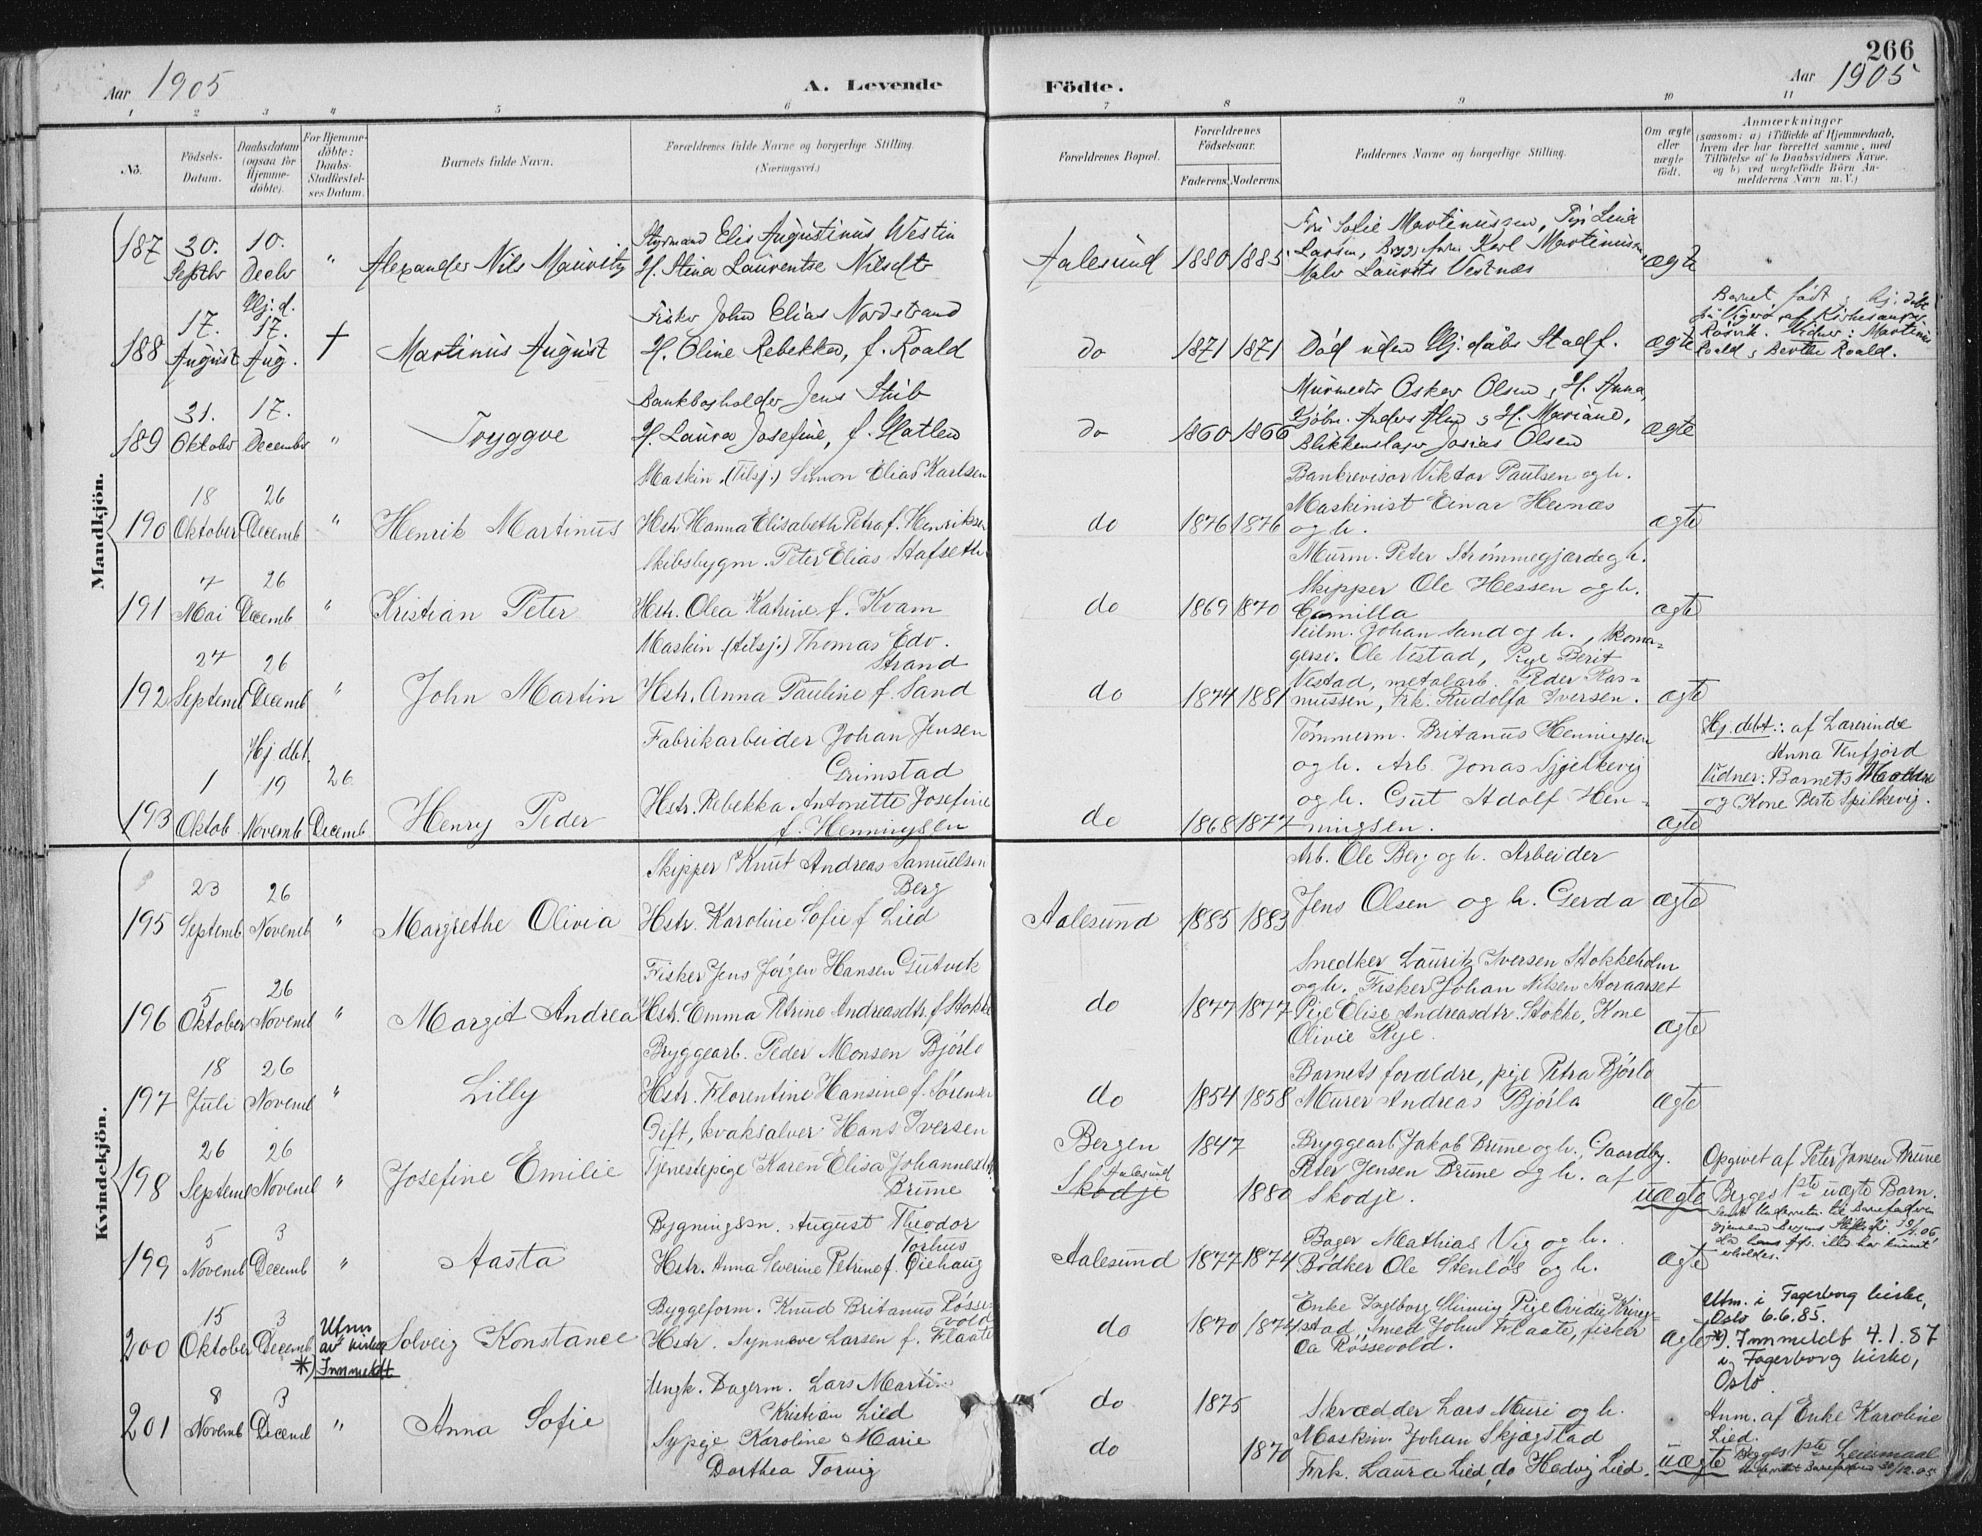 266
Aar 1905
A. Levende
Födte.
Aar 1905
1 2 3 4 5 6 7 8 9 10 11
No.
Födsels-
Datum.
Daabsdatum
(ogsaa for
Hjemme-
döbte).
For Hjemme-
döbte:
Daabs-
Stadfæstel-
ses Datum.
Barnets fulde Navn.
Forældrenes fulde Navne og borgerlige Stilling.
(Næringsvei.)
Forældrenes Bopæl.
Forældrenes
Födselsaar.
Faderens. Moderens.
Faddernes Navne og borgerlige Stilling.
Om ægte
eller
uægte
födt.
Anmærkninger
(saasom: a) i Tilfælde af Hjemmedaab,
hvem der har forrettet samme, med
Tilföielse af to Daabsvidners Navne.
og b) ved uægtefödte Börn An-
melderens Navn m.V.)
Mandkjön.
187
30.
Septbr
10.
Decbr
"
Alexander Nils Mauritz
Styrmand Elis Augustinus Westin
H. Stina Laurentse Nilsdtr
Aalesund
1880 1885
Frk Sofie Martinussen, Pige Lina
Larsen, Karl Martinussen,
Laurits Vestnæs
ægte
188
17.
August
Hj. d.
17.
Aug.
†
Martinus August
Fisker John Elias Nordstrand
H. Oline Rebekka, f. Roald
do
1871 1871
Död uden Hj. dåbs Stadf.
ægte
Barnet födt & hj. döbt
Kirkesanger
Rösvik. Vidner: Martinus
Roald & Berthe Roald.
189
31.
Oktobr
17.
Decembr
"
Tryggve
Bankbogholder Jens Stub
H. Laura Josefine, f. Hatlen
do
1860 1866
Murmester Oskar Olsen & H. Anna,
Kjøbm. Anders Alm & H. Mariane,
Blikkenslager Josias Olsen
ægte
190
18
Oktober
26
Decemb
"
Henrik Martinus
Maskin. (Tilsj.) Simon Elias Karlsen
Hstr. Hanna Elisabeth Petra f. Henriksen
do
1876 1876
Bankrevisor Viktor Paulsen og h.
Maskinist Einar Heinæs
og h.
ægte
191
7
Mai
26
Decemb
"
Kristian Peter
Skibsbygm. Peter Elias Stafseth
Hstr. Olea Katrine f. Kvam
do
1869 1870
Murm. Peter Strømmegjærde og h.
Skipper Ole Hessen og h.
Camilla
ægte
192
27
Septemb
26
Decemb
"
John Martin
Maskin (tilsj.) Thomas Edv.
Strand
Hstr. Anna Pauline f. Sand
do
1874 1881
Seilm. Johan Sand og h., Skoma-
gersv. Ole Vestad, Pige Berit
Vestad, metalarb. Peder Ras-
mussen, Frk. Rudolfa Iversen.
ægte
193
1
Oktob
Hj. dbt.
19
Novemb
26
Decemb
Henry Peder
Fabrikarbeider Johan Jensen
Grimstad
Hstr. Rebekka Antonette Josefine
f. Henningsen
do
1868 1877
Tömmerm. Britanus Henningsen
og h. Arb. Jonas Spjelkevig
og h. Gut Adolf Hen-
ningsen.
ægte
Hj. debt: af Lærerinde
Anna Tenfjord
Vidner: Barnets Moder
og Kone Berte Spilkevig.
Kvindekjön.
195
23
Septemb
26
Novemb
"
Margrethe Olivia
Skipper Knut Andreas Samuelsen
Berg
Hstr. Karoline Sofie f Lied
Aalesund
1885 1883
Arb. Ole Berg og h. Arbeider
Jens Olsen og h. Gerda
ægte
196
5
Oktober
26
Novemb
"
Margit Andrea
Fisker Jens Jørgen Hansen Gutvik
Hstr. Emma Petrine Andreasdtr. f Stokke
do
1877 1877
Snedker Lauritz Iversen Stokkeholm
og h. Fisker Johan Nilsen Storaarset
Pige Elise Andreasdtr. Stokke, Kone
Olivie Rye.
ægte
197
18
Juli
26
Novemb
"
Lilly
Bryggearb. Peder Monsen Bjørlo
Hstr. Florentine Hansine f. Sørensen
do
1854 1858
Barnets forældre, pige Petra Bjørlo
Murer Andreas Bjørlo
ægte
198
26
Septemb
26
Novemb
"
Josefine Emilie
Gift, kvaksalver Hans Iversen
Tjenestepige Karen Elisa Johannesdtr.
Brune
Bergen
Aalesund
Skodje
1847
1880
Bryggearb. Jakob Brune og h., Gaardbr.
Peter Jensen Brune og h. af
Skodje.
uægte
Opgivet af Peter Jensen Brune
Begges 1ste uægte Barn.
Sendt Underretn. til Barnefaderen
gjennem Bergens Stiftsdir.
199
5
Novemb
3
Decemb
"
Aasta
Bygningssn. August Theodor
Torhus
Hstr. Anna Severine Petrine f. Øiehaug
Aalesund
1877 1874
Bager Mathias Vig og h.
Bødker Ole Stenløs og h.
ægte
200
15
Oktober
3
Decemb
*)
Utm.
av kirken
Innmeldt
Solveig Konstance
Byggeform. Knud Britanus Røsse-
vold
Hstr. Synnøve Larsen f. Flaate
do
1870 1874
Enke Ingeborg Slinning Pige Ovidie
Smed John Flaate, fisker
Ca Røssevold.
ægte
Utm. i Fagerborg kirke,
Oslo 6.6.85.
*) Innmeldt 4.1.87
i Fagerborg kirke,
Oslo.
201
8
Novemb
3
Decemb
"
Anna Sofie
Ungk. Dagarm. Lars Martin
Kristian Lied
Sypige Karoline Marie
Dorthea Torvig
do
do
1875
1870
Skrædder Lars Muri og h.
Maskin. Johan Skjægstad
Frk. Laura Lied, do Hedvig Lied.
uægte
Anm. af Enke Karoline
Lied.
Begges 1ste Leiermaal